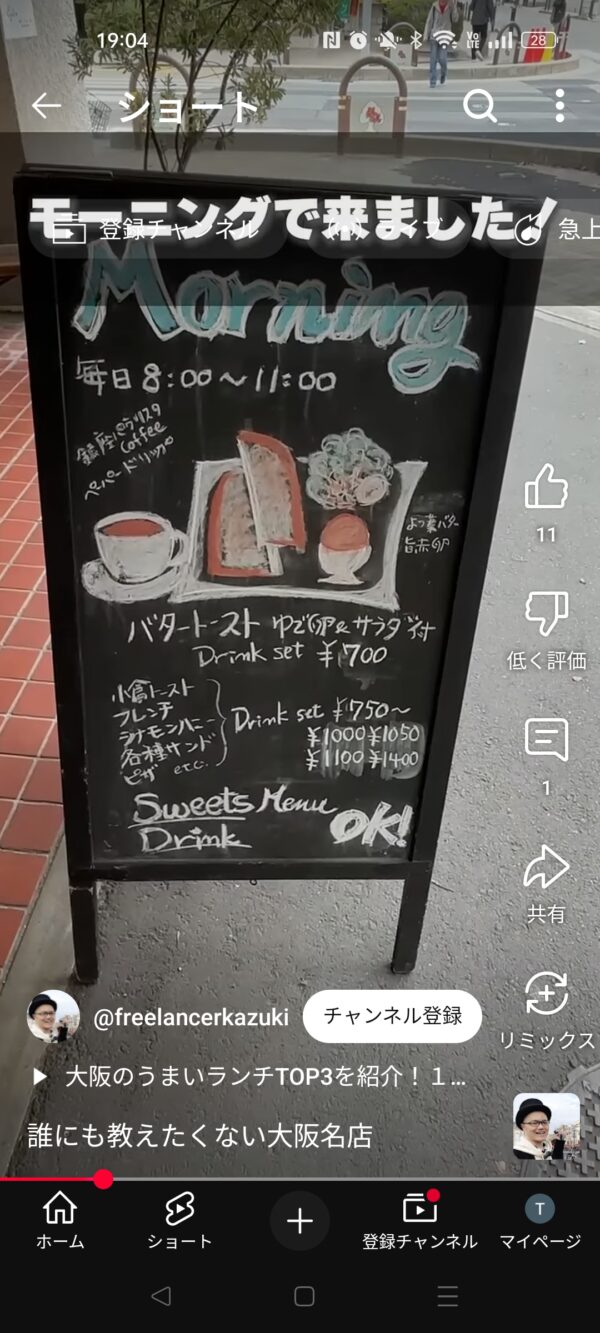 19:04
28
ショート
モーニングで来ました！
登録チャンネル
ライブ
急上
Morning
毎日 8:00～11:00
Coffee
ペーパードリップ
よつ葉バター
旨赤卵
バタートースト ゆで卵&サラダ付
Drink set ¥700
小倉トースト
フレンチ
シナモンハニー
各種サンド
ピザ etc.
Drink set ¥750～
¥1000 ¥1050
¥1100 ¥1400
Sweets Menu
Drink
OK!
11
低く評価
1
共有
リミックス
@freelancerkazuki
チャンネル登録
大阪のうまいランチTOP3を紹介！１...
誰にも教えたくない大阪名店
ホーム
ショート
登録チャンネル
T
マイページ